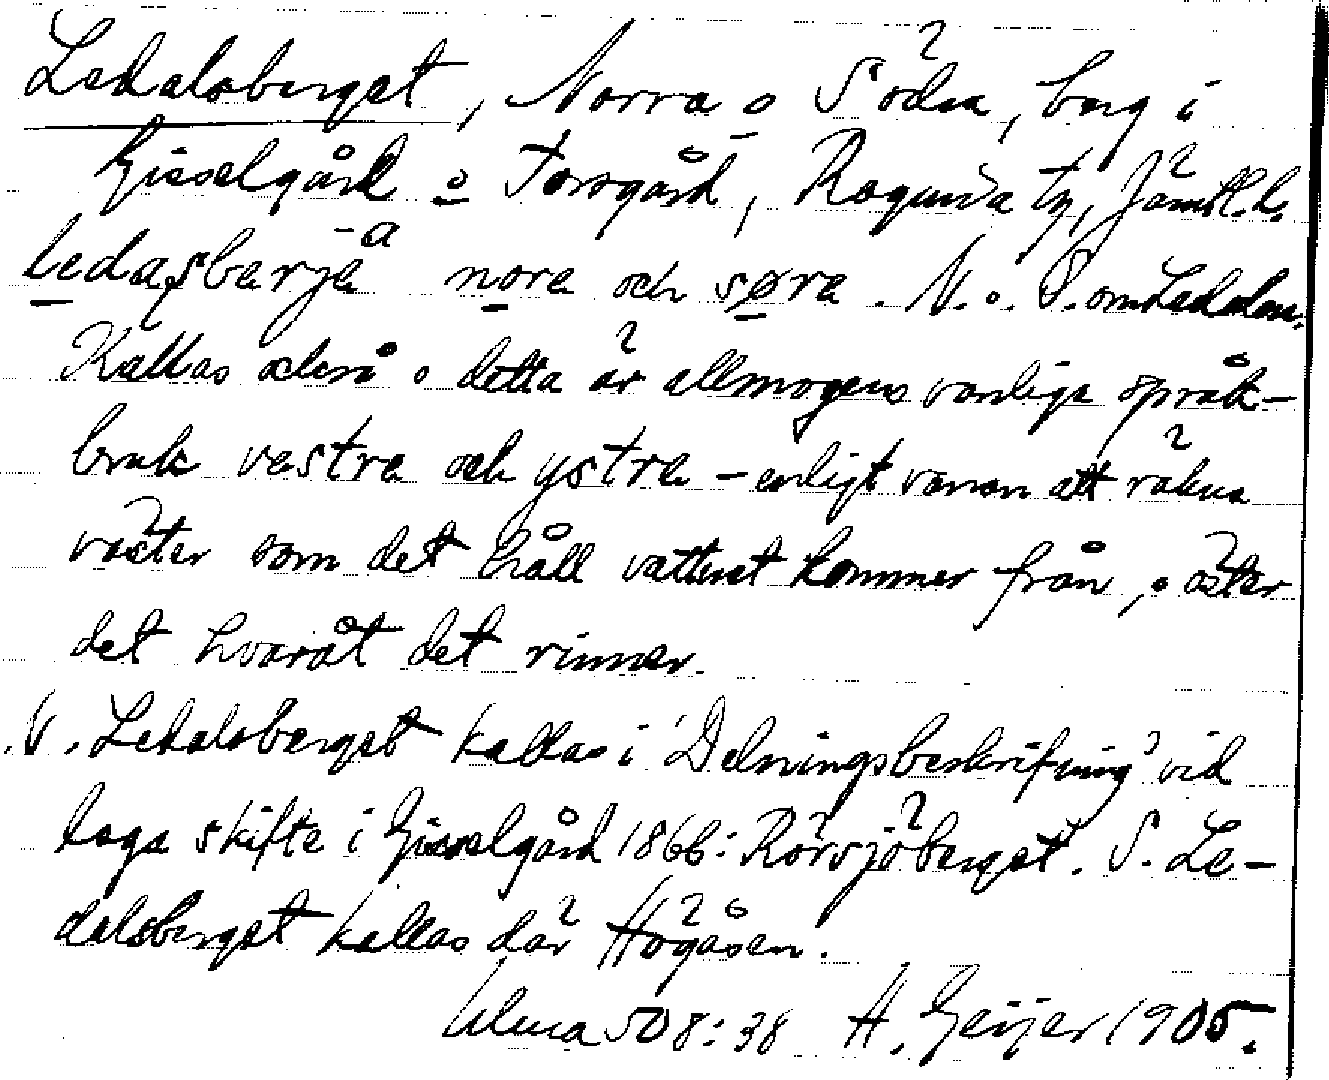 Ledalsberget, Norra o Södra, berg i
Gisselgård o Torsgård, Ragunda tg, Jämtl. l.
ledasberja nora och søra. N. o. S. om Ledalen.
Kallas också o detta är allmogens vanliga språk-
bruk vestra och ystra - enligt vanan att räkna
väster som det håll vattnet kommer från, o öster
det hvaråt det rinner.
N. Ledalsberget kallas i "Delningsbeskrifning" vid
laga skifte i Gisselgård 1866: Rörsjöberget. S. Le-
dalsberget kallas där Högåsen.
Ulma 508:38 H. Geijer 1905.